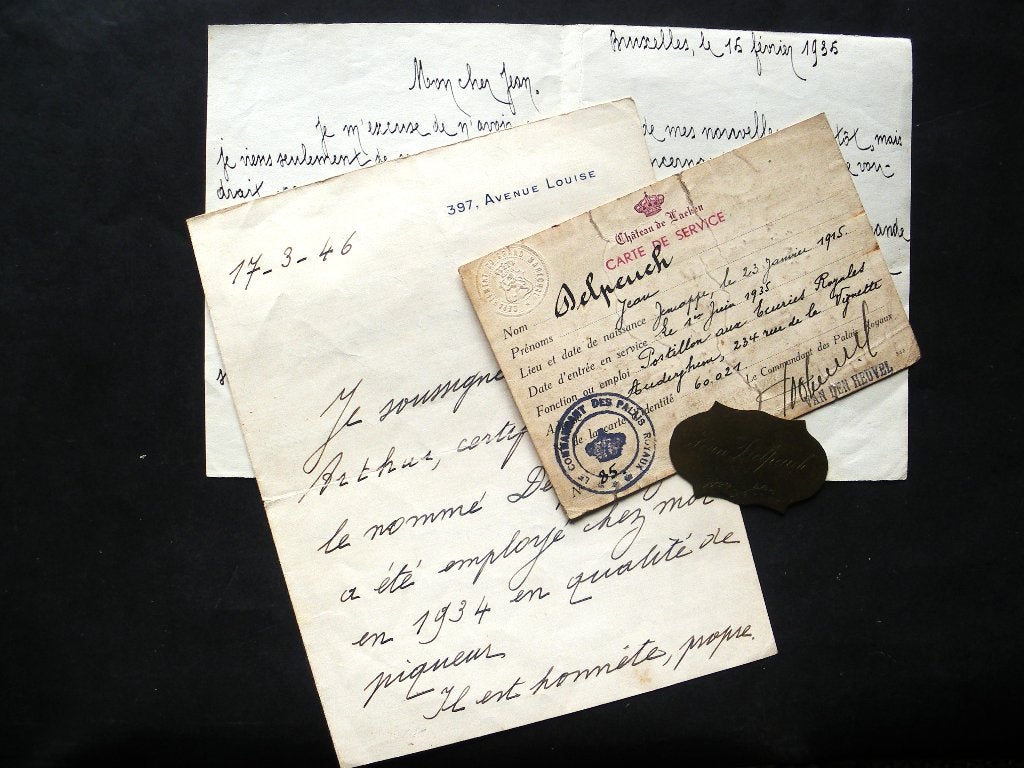 Bruxelles, le 15 février 1935
Mon cher Jean.
Je m'excuse de n'avoir de mes nouvelles tôt, mais
je viens seulement de
drait
397, AVENUE LOUISE
17-3-46
Je soussigné
Arthur, certif
le nommé De
a été employé chez moi
en 1934 en qualité de
piqueur
Il est honnête, propre.
Château de Laeken
CARTE DE SERVICE
Nom Delpeuch
Prénoms Jean
Lieu et date de naissance Jemappe, le 23 Janvier 1915.
Date d'entrée en service le 1er Juin 1935
Fonction ou emploi Postillon aux Ecuries Royales
Auderghem, 234 rue de la Vignette
de la carte identité 60.021.
Le Commandant des Palais Royaux
VAN DEN HEUVEL
LE COMMANDANT DES PALAIS ROYAUX
N 85.
Jean Delpeuch